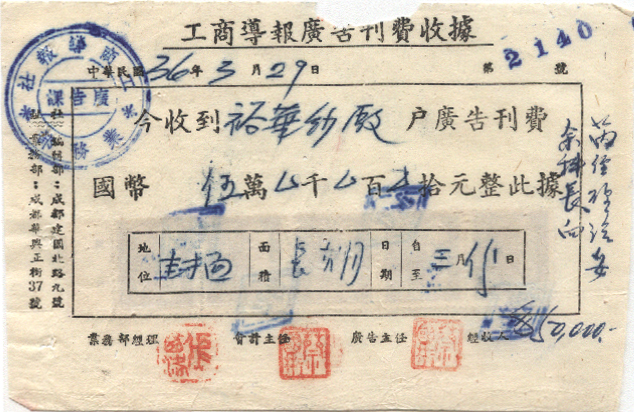 工商導報廣告刊費收據
中華民國36年3月29日
第2140號
今收到裕華紗廠户廣告刊費
國幣伍萬〇千〇百〇拾元整此據
地位 封面 面積 長 日期 自至 三月 日
業務部經理 會計主任 廣告主任 經收人
$50,000.-
社址
編輯部:成都建國北路九號
業務部:成都華興正街37號
工商導報社
廣告課
業務部